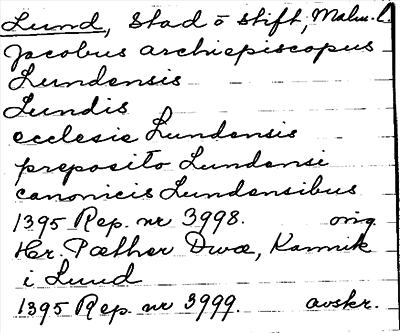 Lund, Stad o stift, Malm. l.
Jacobus archiepiscopus
Lundensis
Lundis
ecclesie Lundensis
preposito Lundensi
canonicis Lundensibus
1395 Rep. nr 3998. orig.
Hr. Pæther Dwæ, Kannik
i Lund
1395 Rep. nr 3999. avskr.